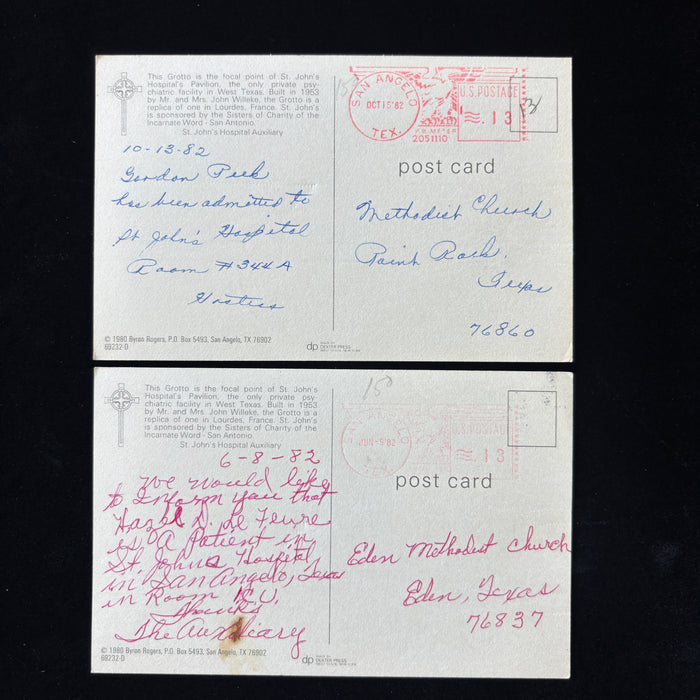 This Grotto is the focal point of St. John's
Hospital's Pavilion, the only private psy-
chiatric facility in West Texas. Built in 1953
by Mr. and Mrs. John Willeke, the Grotto is a
replica of one in Lourdes, France. St. John's
is sponsored by the Sisters of Charity of the
Incarnate Word - San Antonio.
St. John's Hospital Auxiliary
10-13-82
Gordon Peek
has been admitted to
St John's Hospital
Room #344A
Hostess
© 1980 Byron Rogers, P.O. Box 5493, San Angelo, TX 76902
68232-D
dp
DEXTER PRESS
SAN ANGELO
OCT 15 '82
TEX.
P.B. METER
2051110
U.S. POSTAGE
.13
post card
Methodist Church
Paint Rock,
Texas
76860
This Grotto is the focal point of St. John's
Hospital's Pavilion, the only private psy-
chiatric facility in West Texas. Built in 1953
by Mr. and Mrs. John Willeke, the Grotto is a
replica of one in Lourdes, France. St. John's
is sponsored by the Sisters of Charity of the
Incarnate Word - San Antonio
St. John's Hospital Auxiliary
6-8-82
We would like
to Inform you that
Hazel D. Le Fevre
is A Patient in
St. Johns Hospital
in San Angelo, Texas
in Room ICU.
Thanks
The Auxiliary
© 1980 Byron Rogers, P.O. Box 5493, San Angelo, TX 76902
68232-D
dp
DEXTER PRESS
150
SAN ANGELO
JUN -9 '82
TEX
U.S. POSTAGE
.13
post card
Eden Methodist Church
Eden, Texas
76837